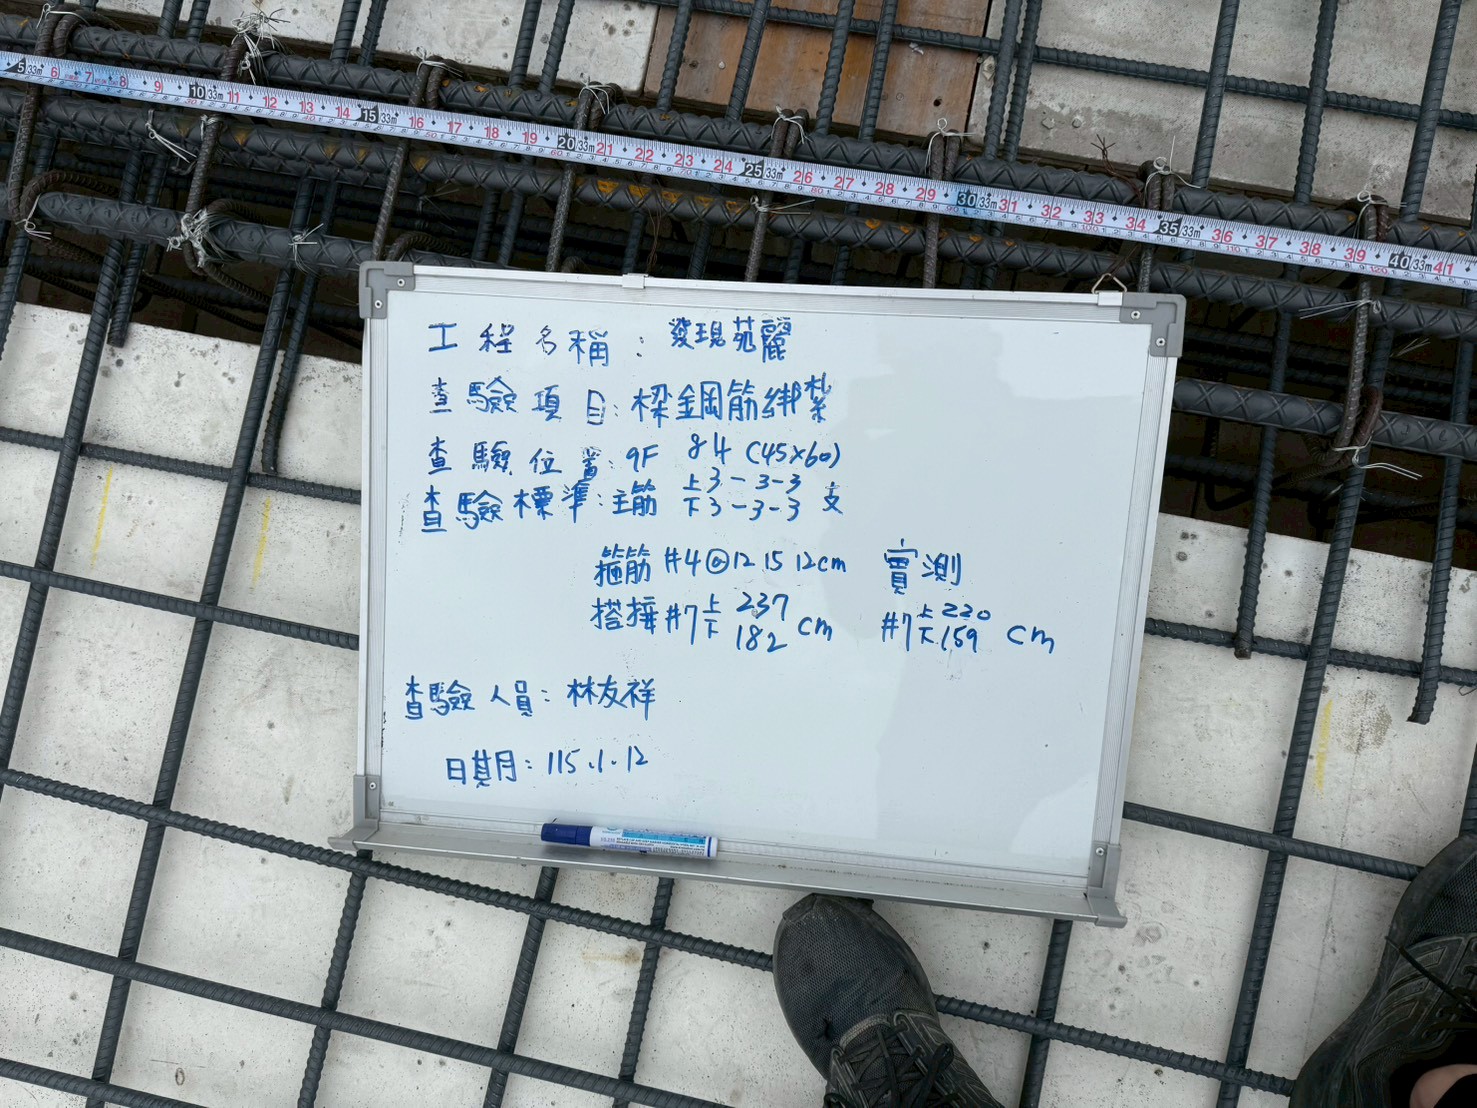 工程名稱：發現苑麗
查驗項目：樑鋼筋綁紮
查驗位置：9F g4 (45×60)
查驗標準：主筋 上3-3-3 下3-3-3 支
箍筋 #4@12 15 12cm 實測
搭接 #7 上237 下182 cm #7 上220 下159 cm
查驗人員：林友祥
日期：115.1.12
5 33m 6 7 8 9 10 33m 11 12 13 14 15 33m 16 17 18 19 20 33m 21 22 23 24 25 33m 26 27 28 29 30 33m 31 32 33 34 35 33m 36 37 38 39 40 33m 41